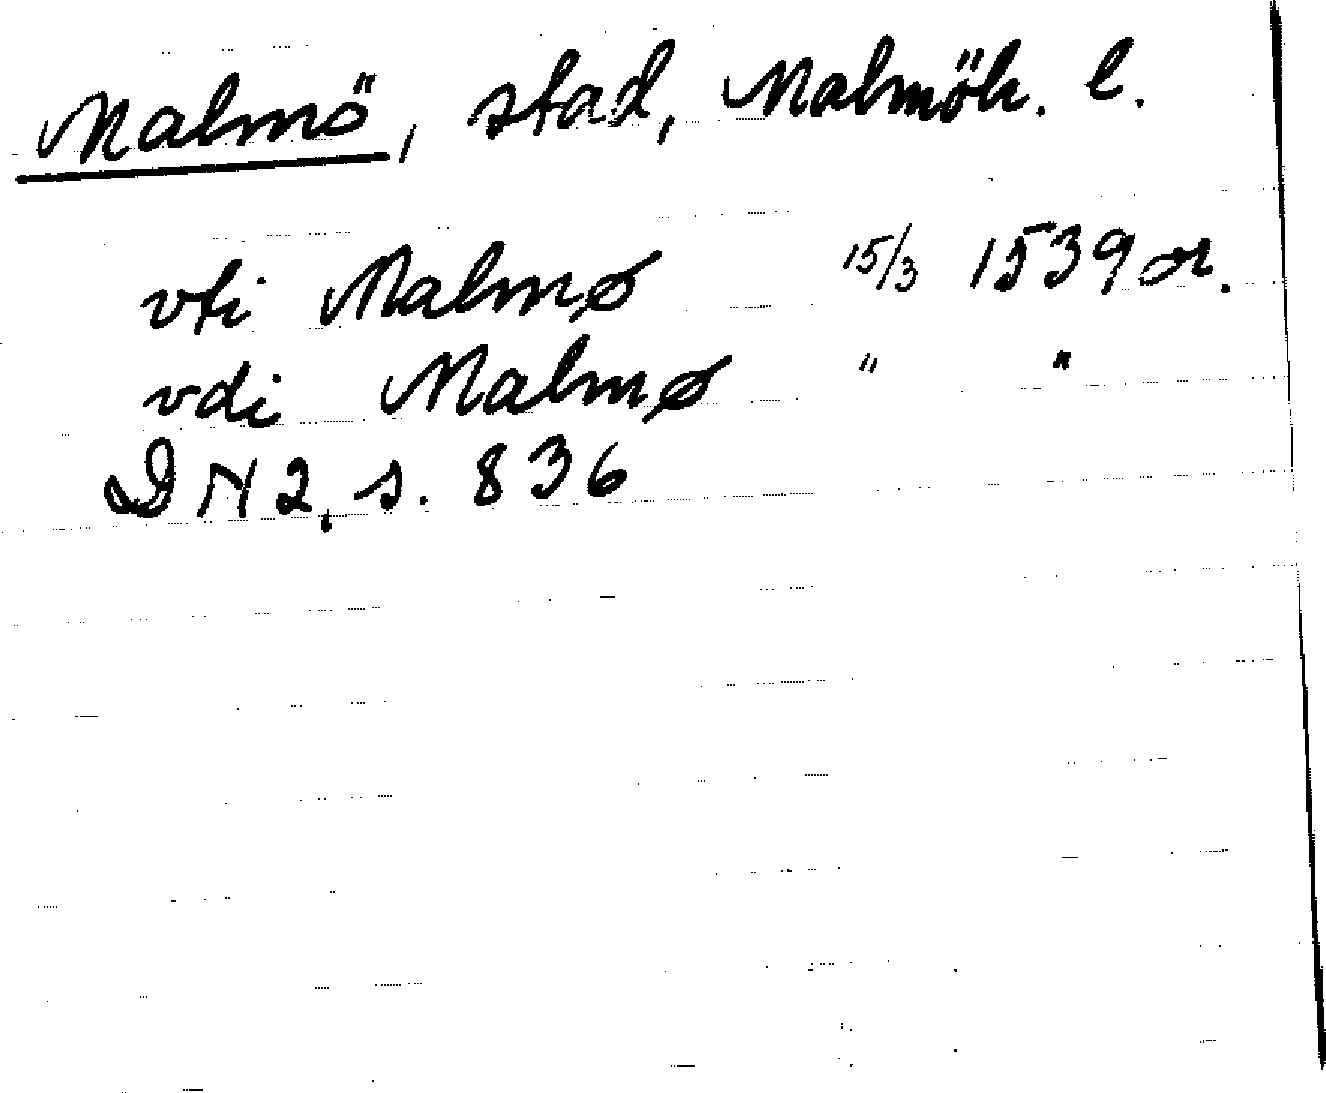 Malmö, stad, Malmöh. l.
vti Malmø 15/3 1539 or.
vdi Malmø " "
DN 2, s. 836